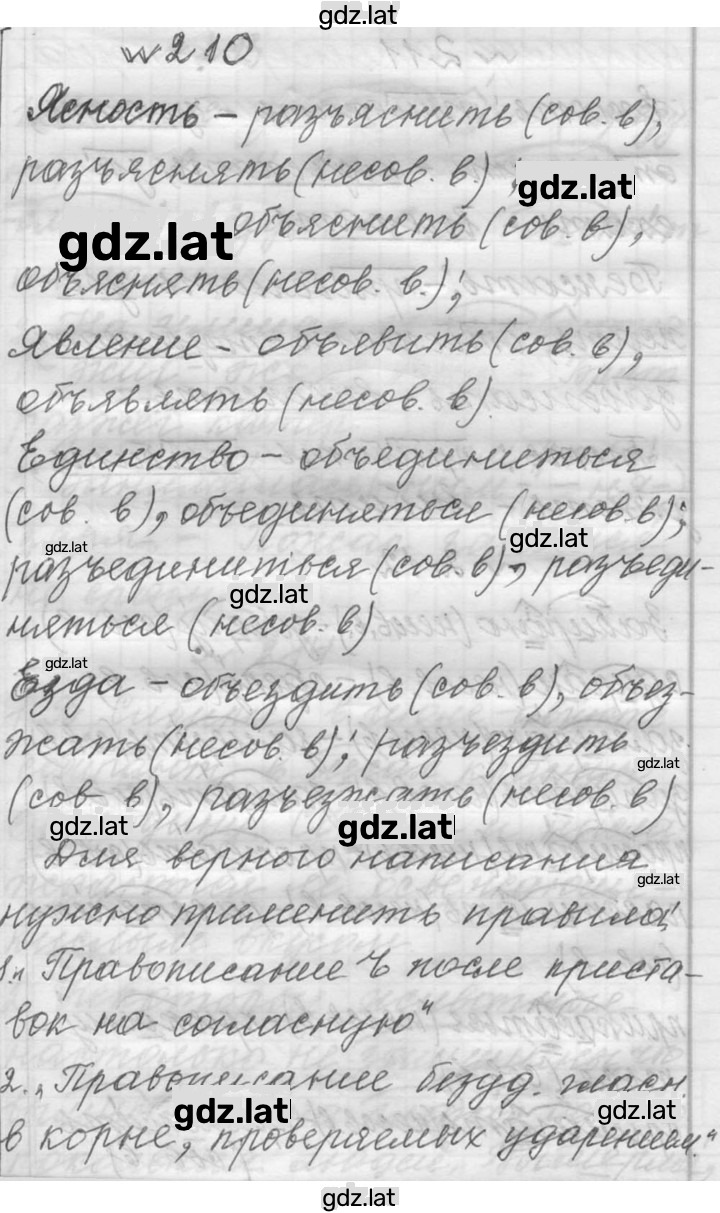 gdz.lat
№210
Ясность - разъяснить (сов. в),
разъяснять (несов. в.) ;
gdz.lat
объяснить (сов. в),
gdz.lat
объяснять (несов. в.);
Явление - объявить (сов. в),
объявлять (несов. в)
Единство - объединиться
(сов. в), объединяться (несов. в);
gdz.lat
gdz.lat
разъединиться (сов. в), разъеди-
gdz.lat
няться (несов. в)
gdz.lat
Езда - объездить (сов. в), объез-
жать (несов. в); разъездить
gdz.lat
(сов в), разъезжать (несов. в)
gdz.lat
gdz.lat
Для верного написания
gdz.lat
нужно применить правила:
1. „Правописание ъ после приста-
вок на согласную“
2. „Правописание безуд. гласн.
gdz.lat
gdz.lat
в корне, проверяемых ударением.“
gdz.lat